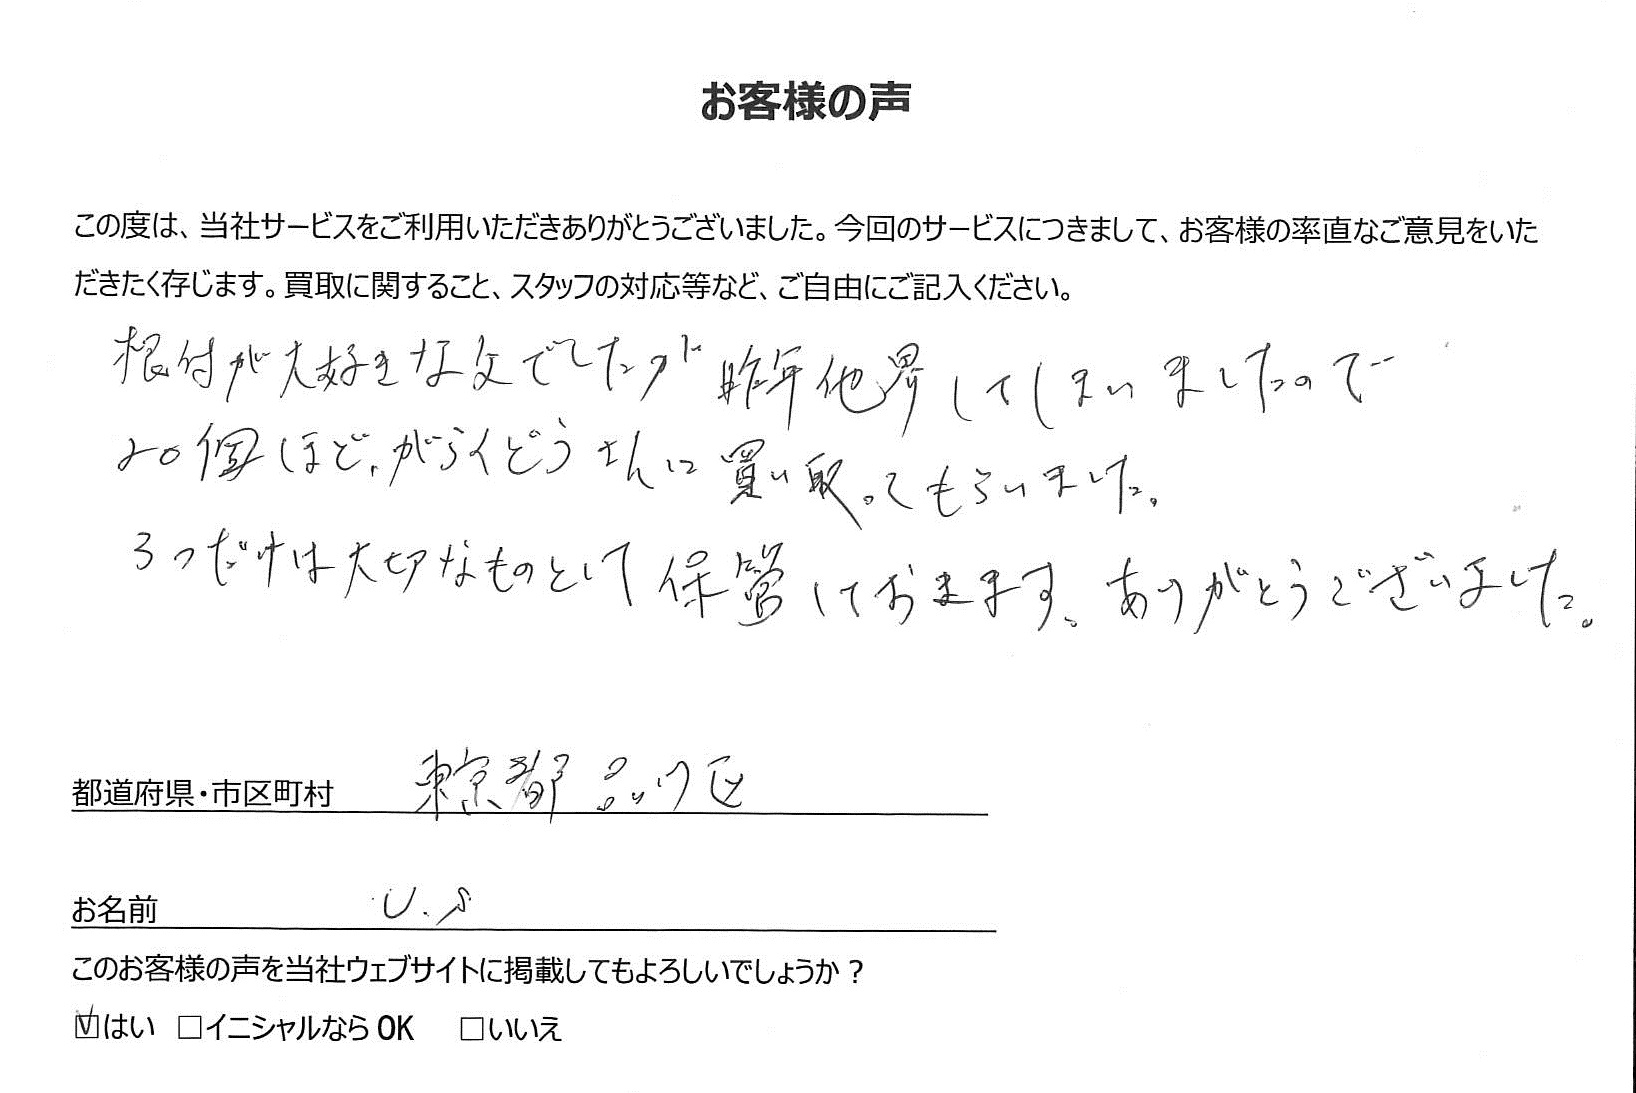 お客様の声
この度は、当社サービスをご利用いただきありがとうございました。今回のサービスにつきまして、お客様の率直なご意見をいた
だきたく存じます。買取に関すること、スタッフの対応等など、ご自由にご記入ください。
根付が大好きな父でしたが昨年他界してしまいましたので
20個ほど、がらくどうさんに買い取ってもらいました。
3つだけは大切なものとして保管しておきます、ありがとうございました。
都道府県・市区町村 東京都品川区
お名前 U.S
このお客様の声を当社ウェブサイトに掲載してもよろしいでしょうか？
☑はい □イニシャルなら OK □いいえ